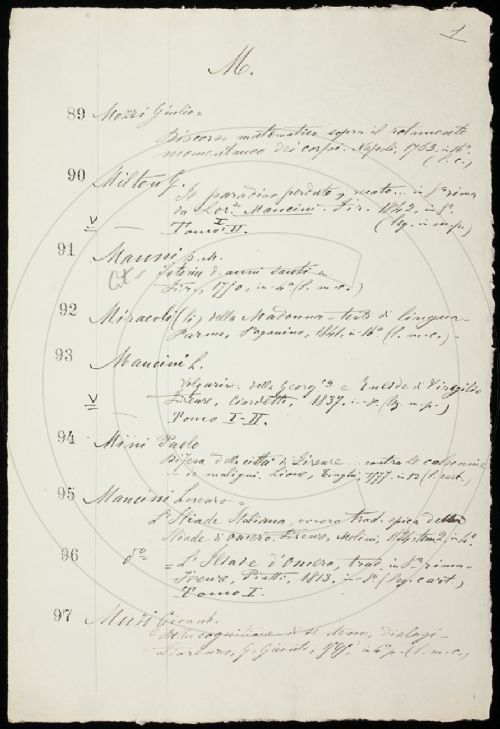 1
M.
89 Mozzi Giulio =
Discorso matematico sopra il rotamento
momentaneo dei corpi. Napoli, 1763. in 4º.
(l. c.)
90 Milton G.
Il paradiso perduto, recato... in 8ª rima
da Lorº Mancini. Fir. 1842, in 8º.
V — Tomo I II. (lg. in mp.)
91 Manni D. M.
Istoria d. anni santi
Fir., 1750, in 4º (l. m. c.)
92 Miracoli (li) della Madonna - testo di lingua -
Parma, Paganino, 1841, in 16º (l. m. c.) -
93 Mancini L.
Volgarizz. della Georgca e Eneide di Virgilio
Firenze, 1837. in 8º (lg. m. p.)
V — Tomo I-II.
94 Mini Paolo
Difesa della città di Firenze... contro le calunnie
de maligni. Lione, 1577. in (l. cart.)
95 Mancini Lorenzo =
L'Iliade Italiana, ovvero trad. epica della
Iliade d'Omero. Firenze, in 4º.
96 dº = L'Iliade d'Omero, trad. in 8ª rima -
Firenze, Piatti, 1813. in 8º (lg. cart.)
Tomo I.
97 Muzi
Della cognitione di se stesso, dialogi -
Fiorenza, G. Giunti, in 4º p. (l. m. c.)